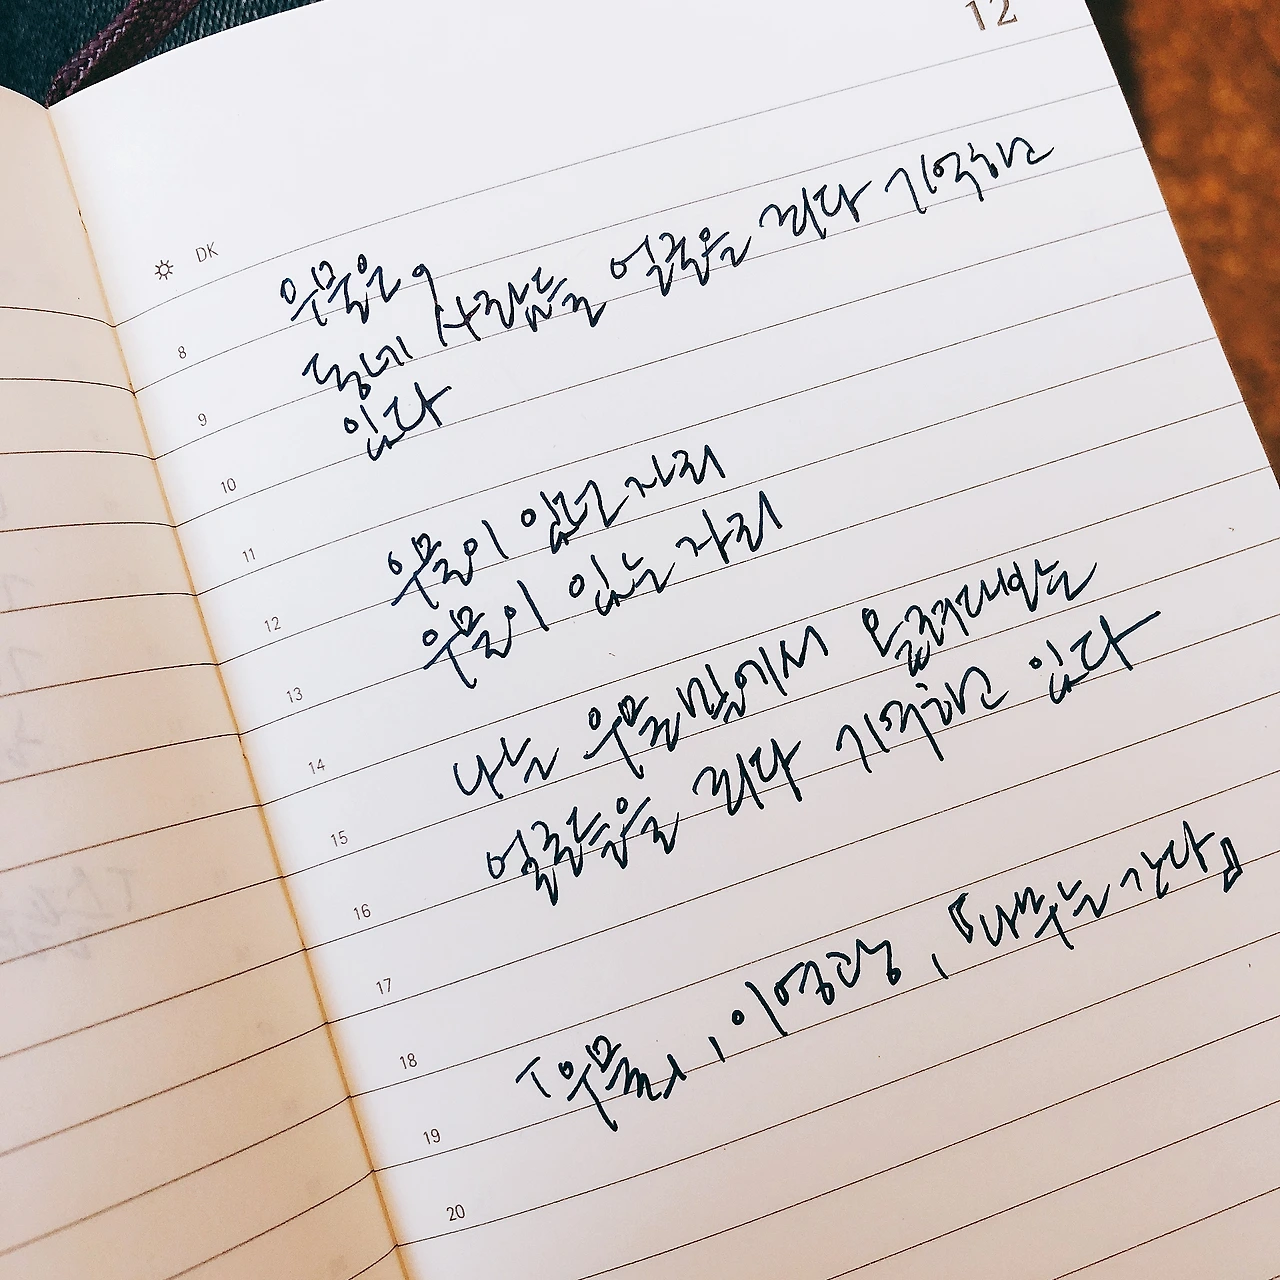 12
DK
우물은,
동네 사람들 얼굴을 죄다 기억하고
있다
우물이 있던 자리
우물이 있는 자리
나는 우물 밑에서 올려다보는
얼굴들을 죄다 기억하고 있다
「우물」, 이영광, 『나무는 간다』
8
9
10
11
12
13
14
15
16
17
18
19
20